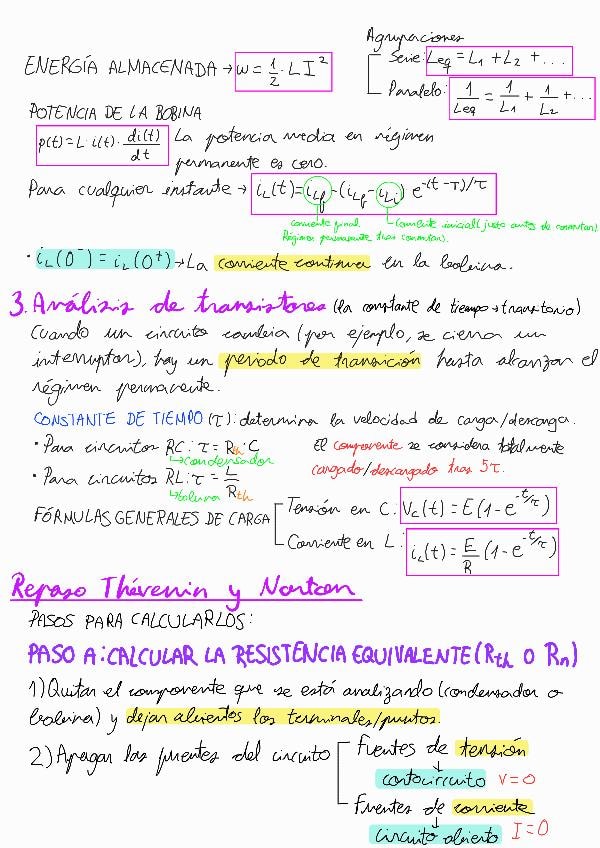 Agrupaciones
ENERGÍA ALMACENADA → w = 1/2 · L I²
Serie: Leq = L1 + L2 + ...
Paralelo: 1/Leq = 1/L1 + 1/L2 + ...
POTENCIA DE LA BOBINA
p(t) = L · i(t) · di(t)/dt La potencia media en régimen
permanente es cero.
Para cualquier instante → iL(t) = iLf - (iLf - iLi) e^-(t-τ)/τ
corriente final. Corriente inicial (justo antes de conmutar)
Régimen permanente tras conmutar).
· iL(0⁻) = iL(0⁺) → La corriente continua en la bobina.
3. Análisis de transistores (la constante de tiempo → transitorio)
Cuando un circuito cambia (por ejemplo, se cierra un
interruptor), hay un periodo de transición hasta alcanzar el
régimen permanente.
CONSTANTE DE TIEMPO (τ): determina la velocidad de carga/descarga.
· Para circuitos RC: τ = Rth · C
condensador
El componente se considera totalmente
cargado/descargado tras 5τ.
· Para circuitos RL: τ = L/Rth
bobina
FÓRMULAS GENERALES DE CARGA
Tensión en C: Vc(t) = E(1 - e^-t/τ)
Corriente en L: iL(t) = E/R (1 - e^-t/τ)
Repaso Thévenin y Norton
PASOS PARA CALCULARLOS:
PASO A: CALCULAR LA RESISTENCIA EQUIVALENTE (Rth O Rn)
1) Quitar el componente que se está analizando (condensador o
bobina) y dejar abiertos los terminales/puntos.
2) Apagar las fuentes del circuito
Fuentes de tensión
↓
cortocircuito V = 0
Fuentes de corriente
↓
circuito abierto I = 0